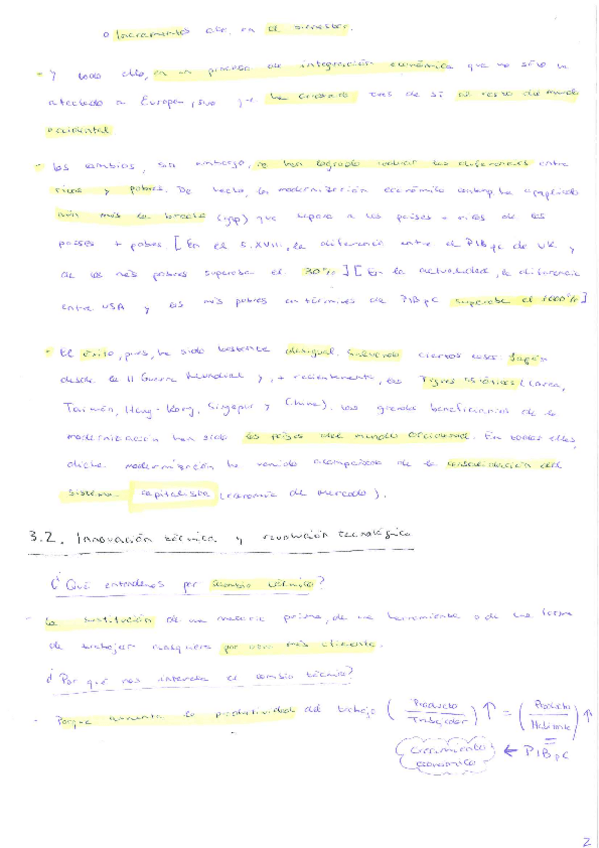 o Incremento etc. en el bienestar.
- Y todo ello, en un proceso de integración económica que no sólo ha
afectado a Europa, sino que ha arrastrado tras de sí el resto del mundo
occidental
- Los cambios, sin embargo, no han logrado reducir las diferencias entre
ricos y pobres. De hecho, la modernización económica contemp. ha ampliado
aún más la brecha (gap) que separa a los países + ricos de los
países + pobres [En el S.XVIII, la diferencia entre el PIBpc de UK y
de los más pobres superaba el 30%] [En la actualidad, la diferencia
entre USA y los más pobres en términos de PIBpc supera el 1000%]
- El éxito, pues, ha sido bastante desigual. Salvando ciertos casos: Japón
desde la II Guerra Mundial y, + recientemente, los Tigres asiáticos (Corea,
Taiwán, Hong-Kong, Singapur y China). Los grandes beneficiarios de la
modernización han sido los países del mundo occidental. En todos ellos,
dicha modernización ha venido acompañada de la consolidación del
sistema capitalista (economía de mercado).
3.2. Innovación técnica y revolución tecnológica
¿Qué entendemos por cambio técnico?
- La sustitución de una materia prima, de una herramienta o de una forma
de trabajar cualquiera por otra más eficiente.
¿Por qué nos interesa el cambio técnico?
- Porque aumenta la productividad del trabajo (Producto/Trabajador) ↑ = (Producto/Habitante) ↑
Crecimiento económico ← PIBpc
2